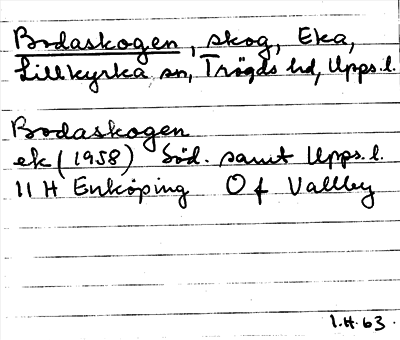 Bodaskogen, skog, Eka,
Lillkyrka sn, Trögds hd, Upps. l.
Bodaskogen
ek (1958) Söd. samt Upps. l.
11 H Enköping O f Vallby
I.H. 63.